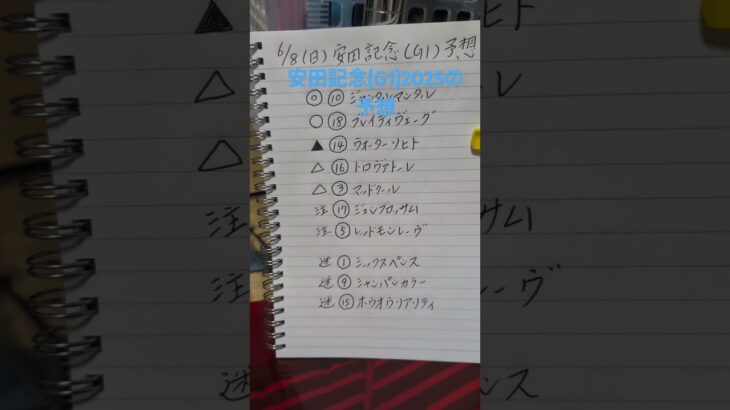 6/8(日) 安田記念(G1)予想
安田記念(G1)2025の
予想
◎ ⑩ ジャンタルマンタル
○ ⑱ ブレイディヴェーグ
▲ ⑭ ウォーターリヒト
△ ⑯ トロヴァトーレ
△ ③ マッドクール
注 ⑰ ジュンブロッサム
注 ⑤ レッドモンレーヴ
迷 ① シックスペンス
迷 ⑨ シャンパンカラー
迷 ⑮ ホウオウリアリティ